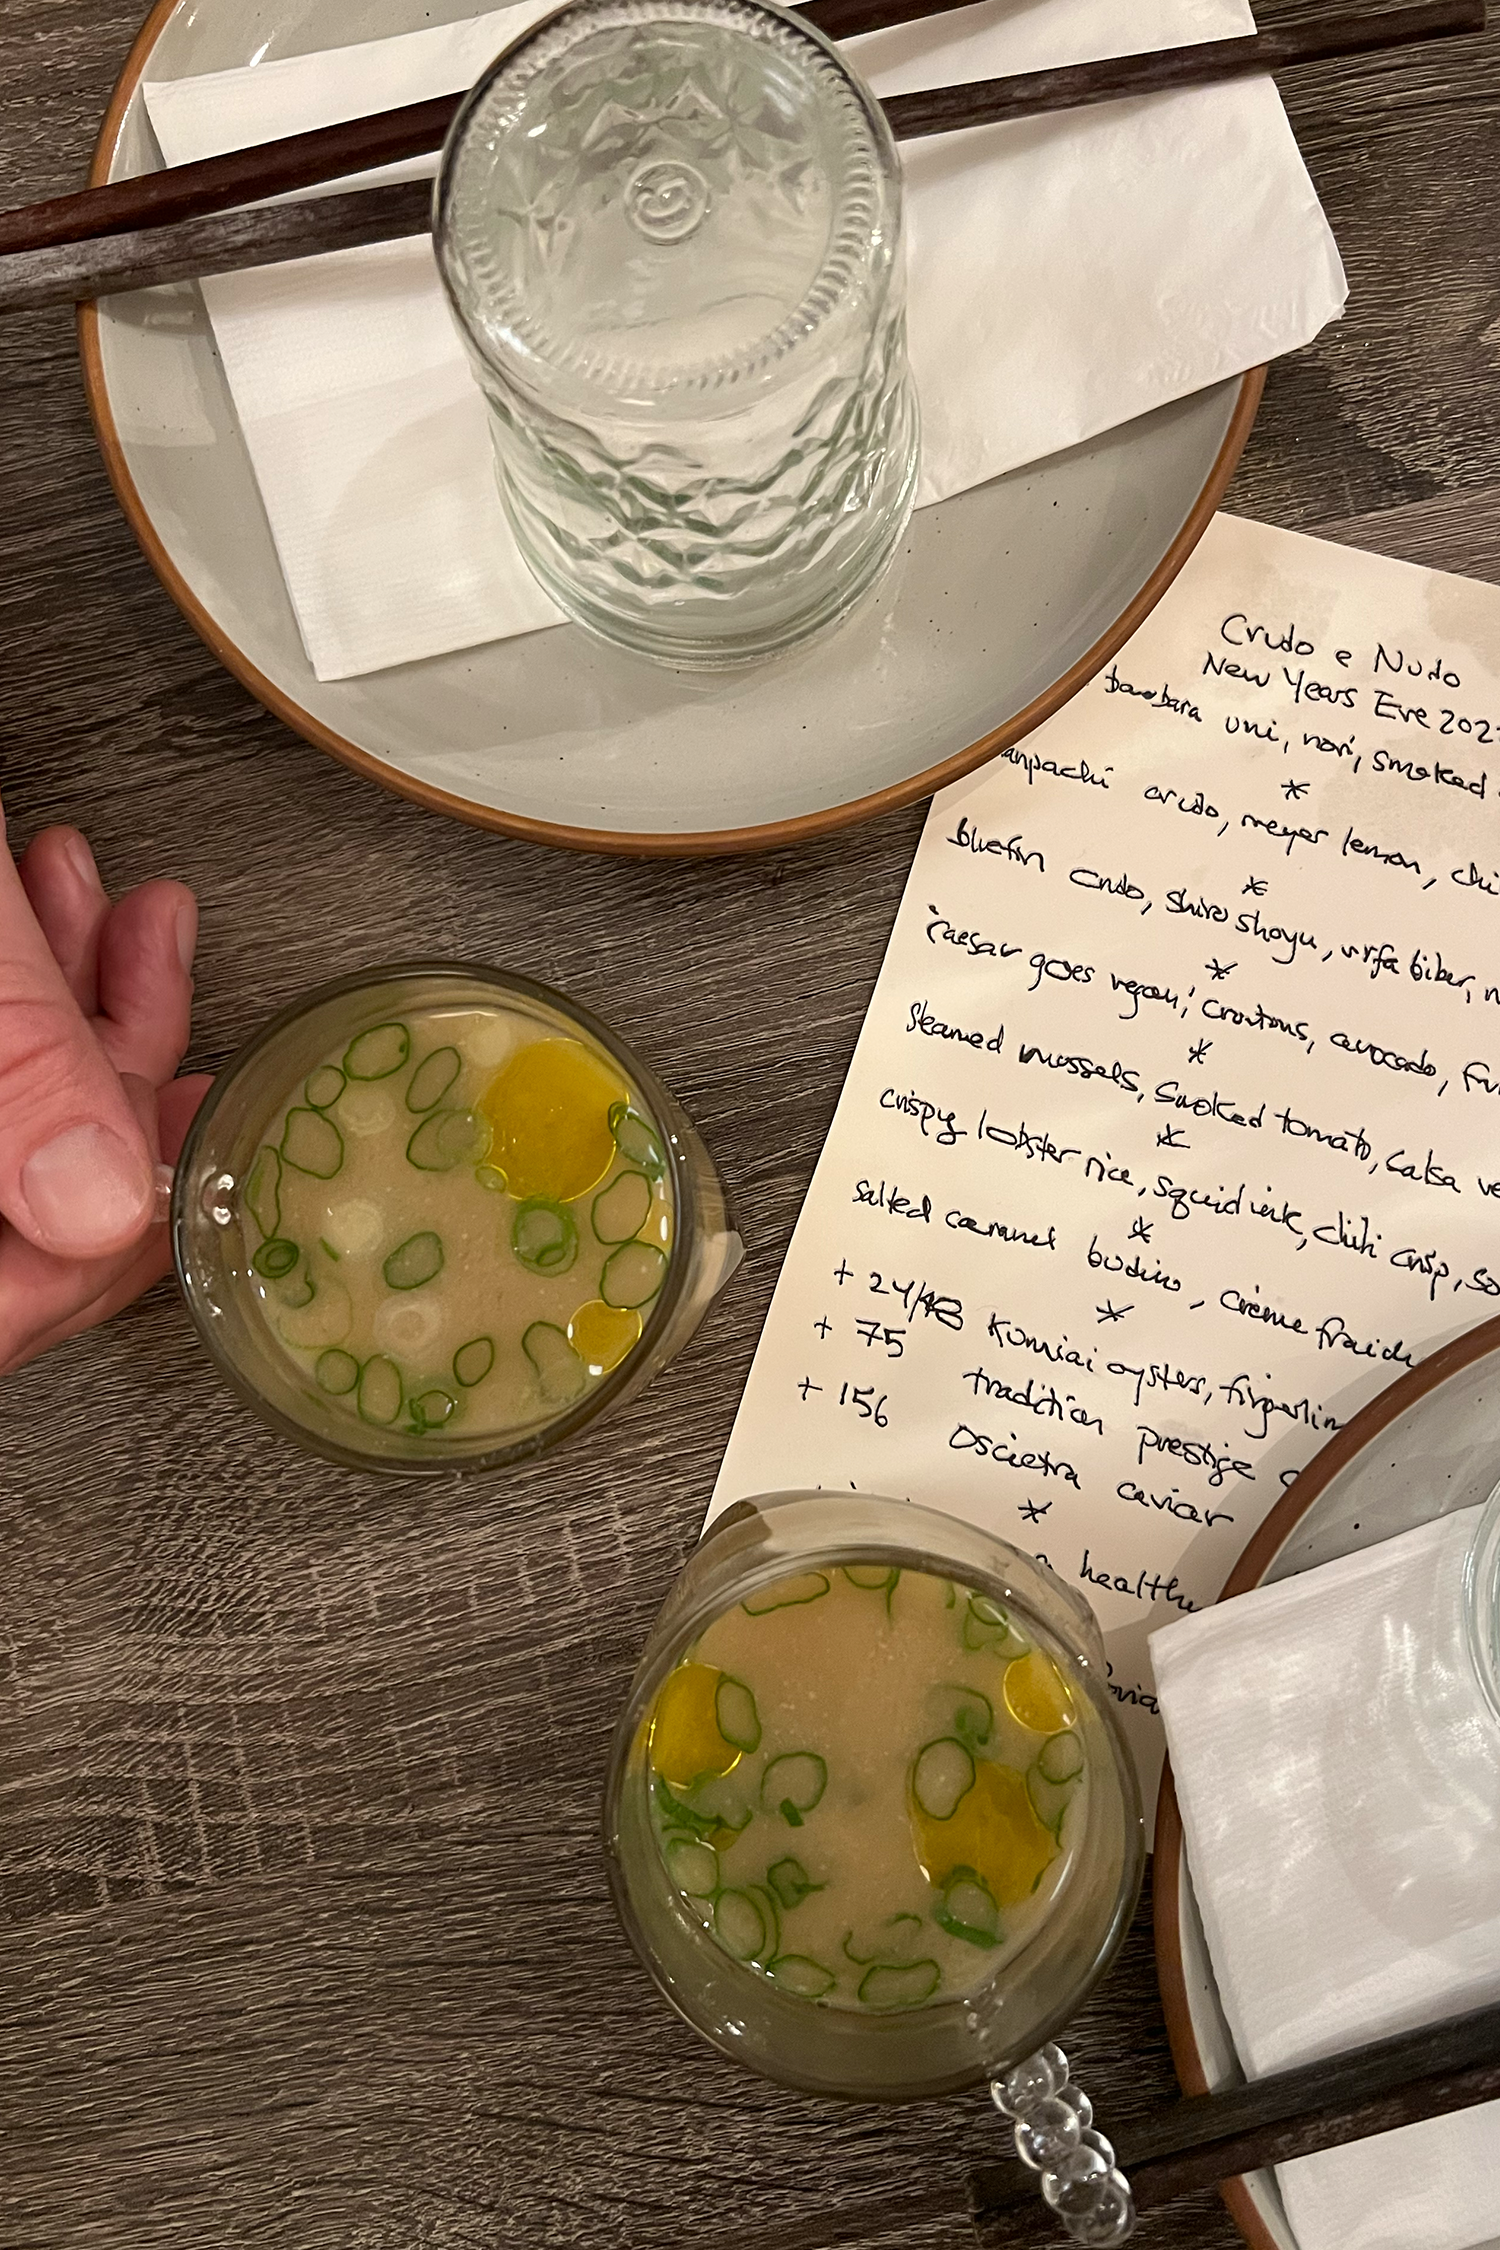 Crudo e Nudo
New Years Eve 202
barbara uni, nori, smoked
*
anpachi crudo, meyer lemon, chi
*
bluefin crudo, shiro shoyu, urfa biber, n
*
"caesar goes vegan", croutons, avocado, fu
*
steamed mussels, smoked tomato, salsa ve
*
crispy lobster rice, squid ink, chili crisp, sa
*
salted caramel budino, crème fraich
*
+ 24/48 Kumiai oysters, fingerlim
+ 75 tradition prestige c
+ 156 Oscietra caviar
*
a healthy